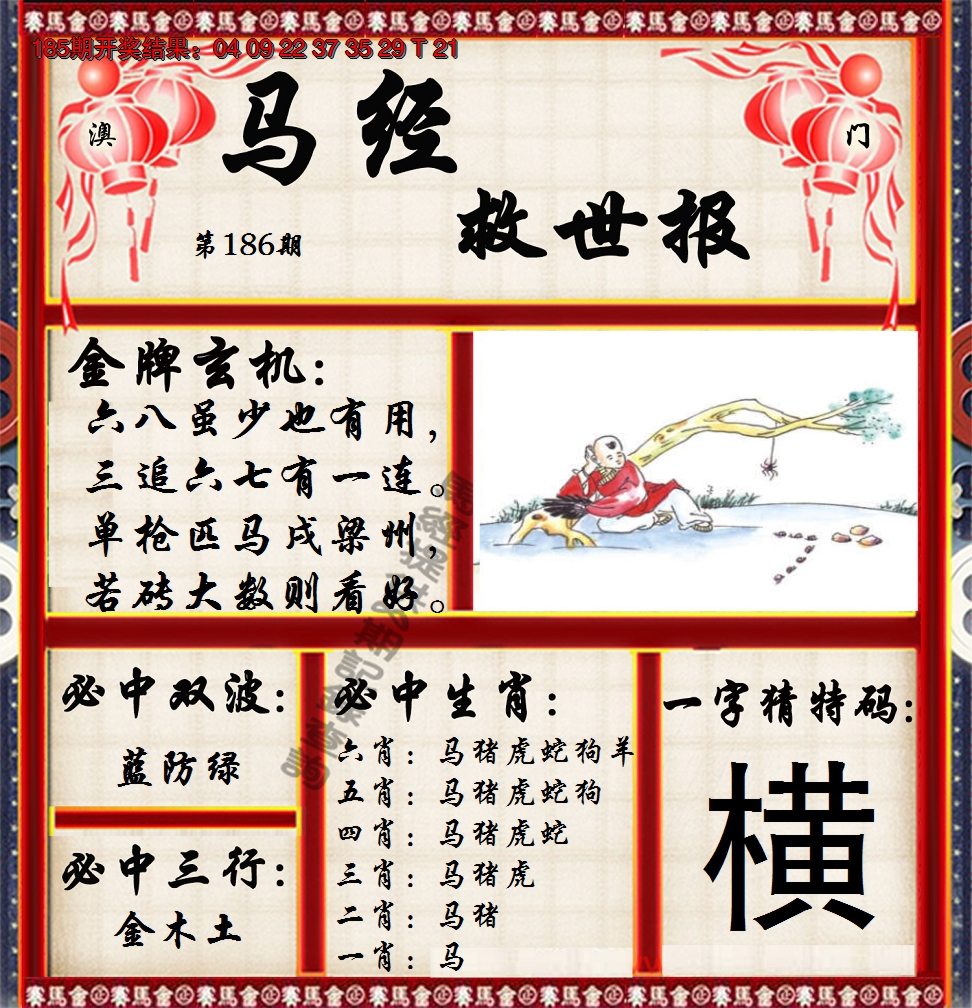 賽馬會
185期开奖结果：04 09 22 37 35 29 T 21
澳
门
马经
救世报
第186期
金牌玄机：
六八虽少也有用，
三追六七有一连。
单枪匹马戌梁州，
若砖大数则看好。
必中双波：
蓝防绿
必中三行：
金木土
必中生肖：
六肖：马猪虎蛇狗羊
五肖：马猪虎蛇狗
四肖：马猪虎蛇
三肖：马猪虎
二肖：马猪
一肖：马
一字猜特码：
横